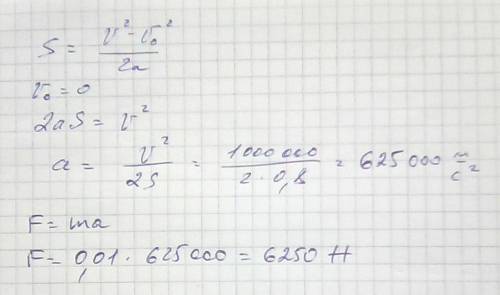 S = (υ² - υ₀²) / 2a
υ₀ = 0
2aS = υ²
a = υ² / 2S = 1000 000 / 2 · 0,8 = 625 000 м/с²
F = ma
F = 0,01 · 625 000 = 6250 Н